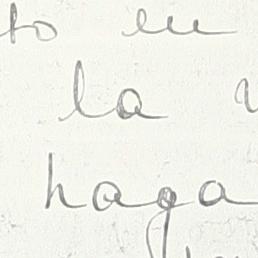 to en
la
haga